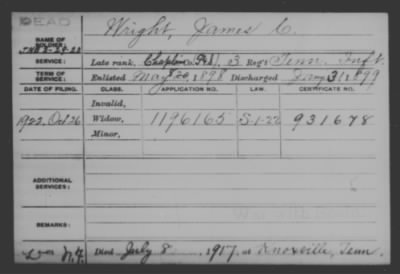 DEAD
NAME OF SOLDIER: Wright, James C.
SERVICE: Late rank, Chaplain Co. F&S, 3 Reg't Tenn. Inft.
TERM OF SERVICE: Enlisted May 20, 1898 Discharged Jany 31, 1899
DATE OF FILING. CLASS. APPLICATION NO. LAW. CERTIFICATE NO.
Invalid,
1922, Oct 26 Widow, 1196165 S-1-22 931678
Minor,
ADDITIONAL SERVICES:
REMARKS:
Died July 8, 1917, at Knoxville, Tenn.